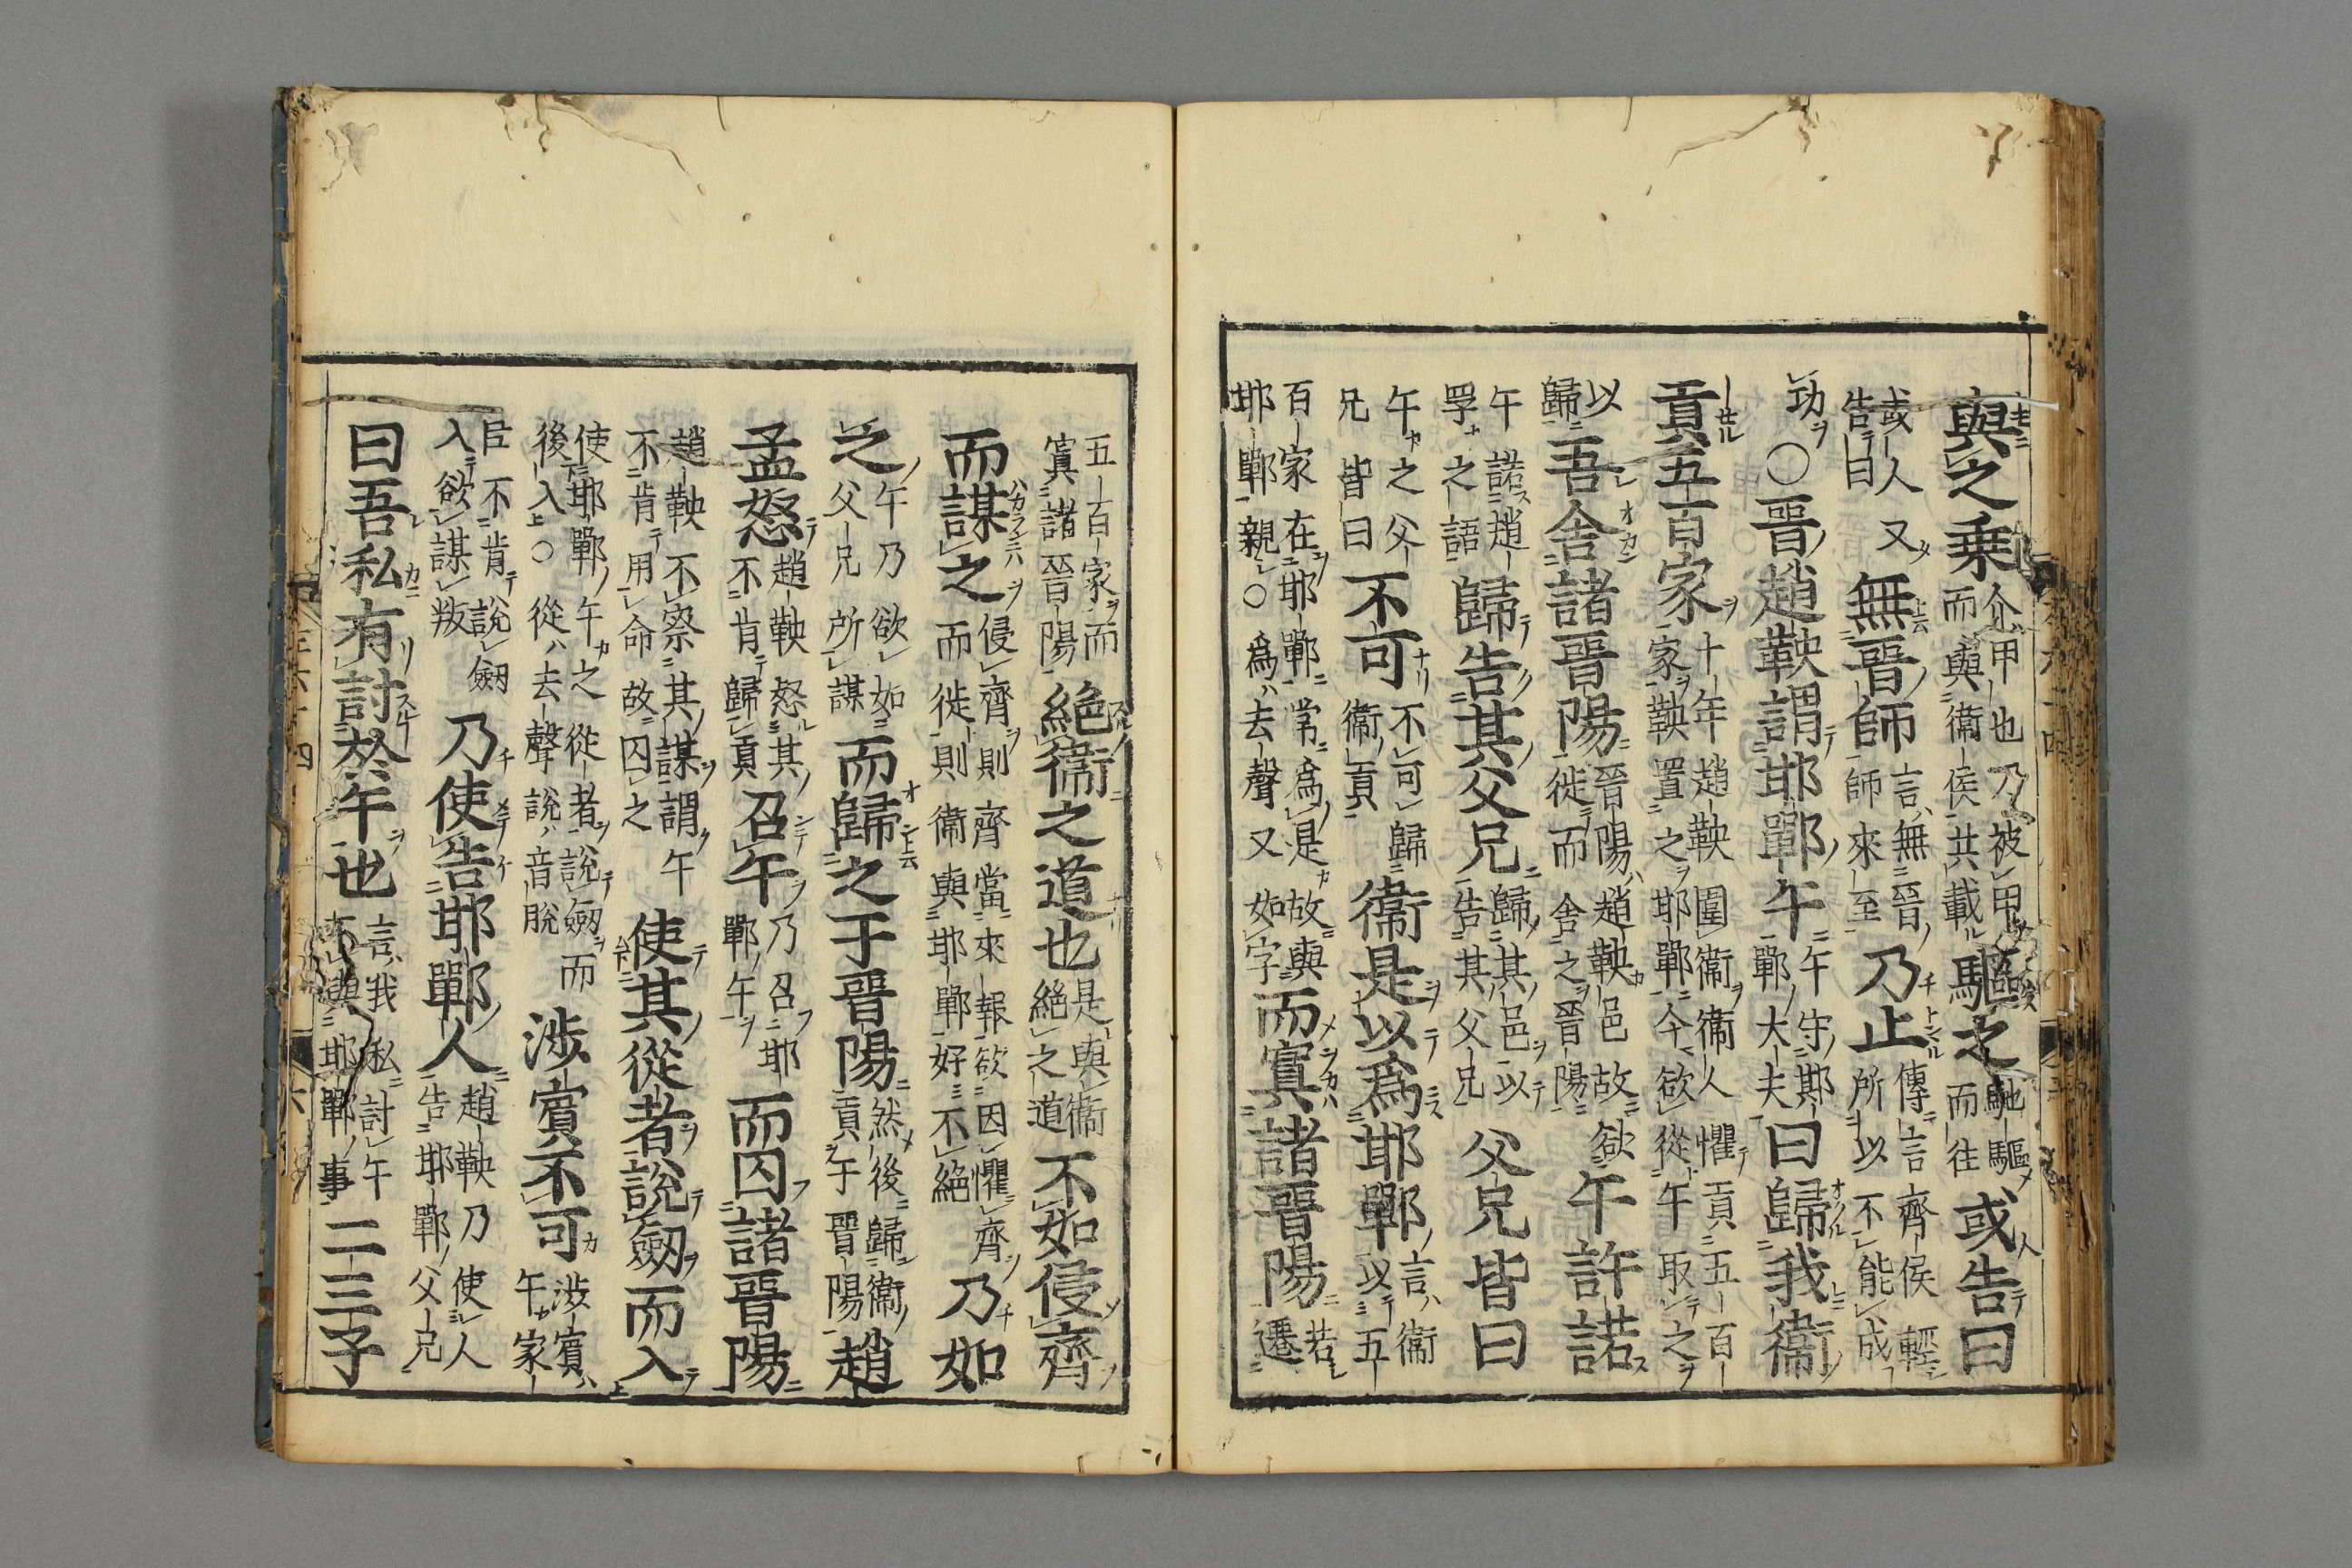 與之乘介甲也乃被甲而與衞侯共載驅之馳驅而往或告曰
或人又告曰無晉師言無晉師來至乃止傳言齊侯輕所以不能成
功○晉趙鞅謂邯鄲午午守邯鄲大夫曰歸我衞
貢五百家十年趙鞅圍衞衞人懼貢五百家鞅置之邯鄲今欲從午取之
以歸吾舍諸晉陽晉陽趙鞅邑故欲徙而舍之晉陽午許諾
午諾趙孚之語歸告其父兄歸其邑以告其父兄父兄皆曰
午之父兄皆曰不可不可歸衞貢衞是以爲邯鄲言衞以五
百家在邯鄲常爲是故與邯鄲親○爲去聲又如字而寘諸晉陽若遷
五百家而寘諸晉陽絶衞之道也是與衞絶之道不如侵齊
而謀之侵齊則齊當來報欲因懼齊而徙則衞與邯鄲好不絶乃如
之午乃欲如之父兄所謀而歸之于晉陽然後歸衞貢于晉陽趙
孟怒趙鞅怒其不肯歸貢召午乃召邯鄲午而囚諸晉陽
趙鞅不察其謀謂午不肯用命故囚之使其從者說劒而入
使邯鄲午之從者說劒而後入○從去聲說音脫涉賓不可涉賓午家
臣不肯說劒入欲謀叛乃使告邯鄲人趙鞅乃使人告邯鄲父兄
曰吾私有討於午也言我私討午不與邯鄲事二三子